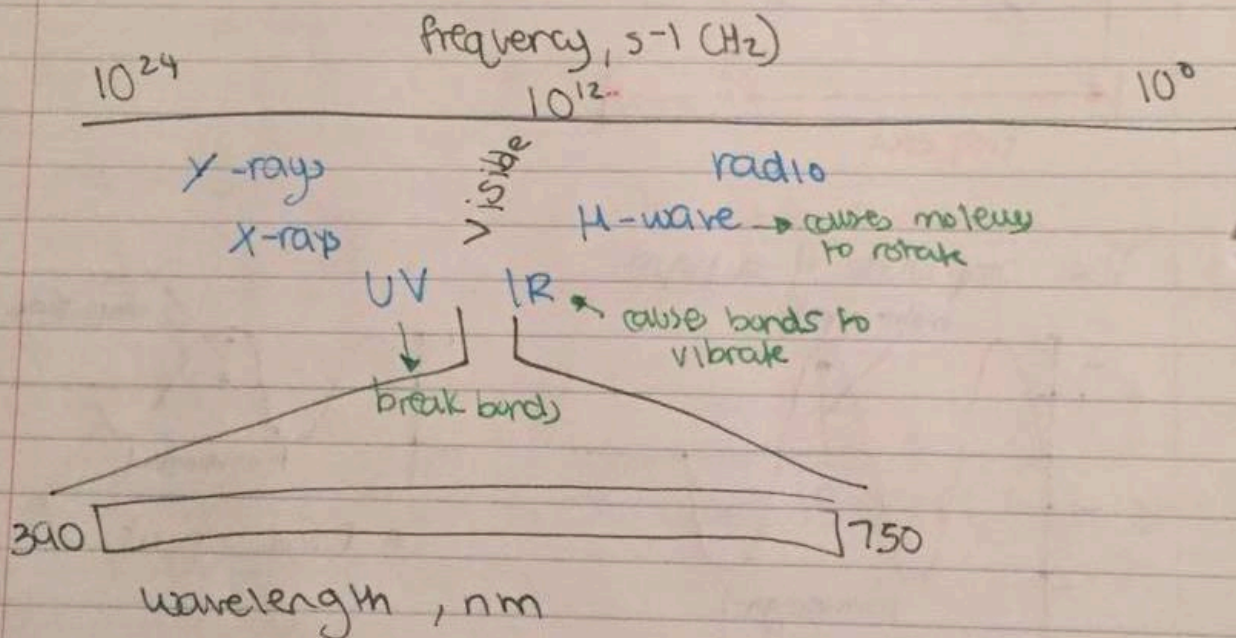 frequency, s-1 (Hz)
10²⁴
10¹²
10⁰
γ-rays
visible
radio
X-rays
μ-wave → causes molecules
to rotate
UV
IR
cause bonds to
vibrate
break bonds
390
750
wavelength, nm